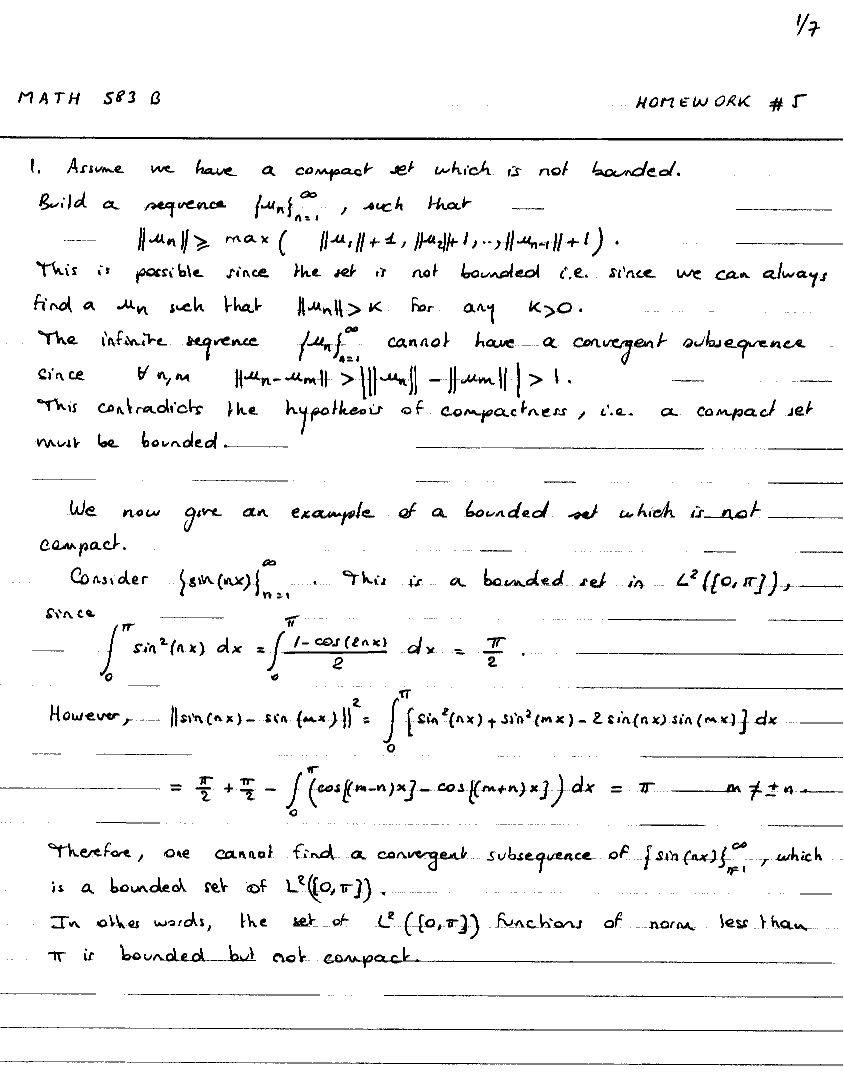 1/7
MATH 583 B HOMEWORK # 5
1. Assume we have a compact set which is not bounded.
Build a sequence {u_n}_{n=1}^∞, such that
||u_n|| ⩾ max( ||u_1||+1, ||u_2||+1, .., ||u_{n-1}||+1).
This is possible since the set is not bounded i.e. since we can always
find a u_n such that ||u_n|| > K for any K>0.
The infinite sequence {u_n}_{n=1}^∞ cannot have a convergent subsequence
since ∀ n,m ||u_n - u_m|| > | ||u_n|| - ||u_m|| | > 1.
This contradicts the hypothesis of compactness, i.e. a compact set
must be bounded.
We now give an example of a bounded set which is not
compact.
Consider {sin(nx)}_{n=1}^∞. This is a bounded set in L²([0,π]),
since
∫_0^π sin²(nx) dx = ∫_0^π (1-cos(2nx))/2 dx = π/2.
However, ||sin(nx) - sin(mx)||² = ∫_0^π [sin²(nx) + sin²(mx) - 2 sin(nx) sin(mx)] dx
= π/2 + π/2 - ∫_0^π (cos[(m-n)x] - cos[(m+n)x]) dx = π m ≠ ±n.
Therefore, one cannot find a convergent subsequence of {sin(nx)}_{n=1}^∞, which
is a bounded set of L²([0,π]).
In other words, the set of L²([0,π]) functions of norm less than
π is bounded but not compact.